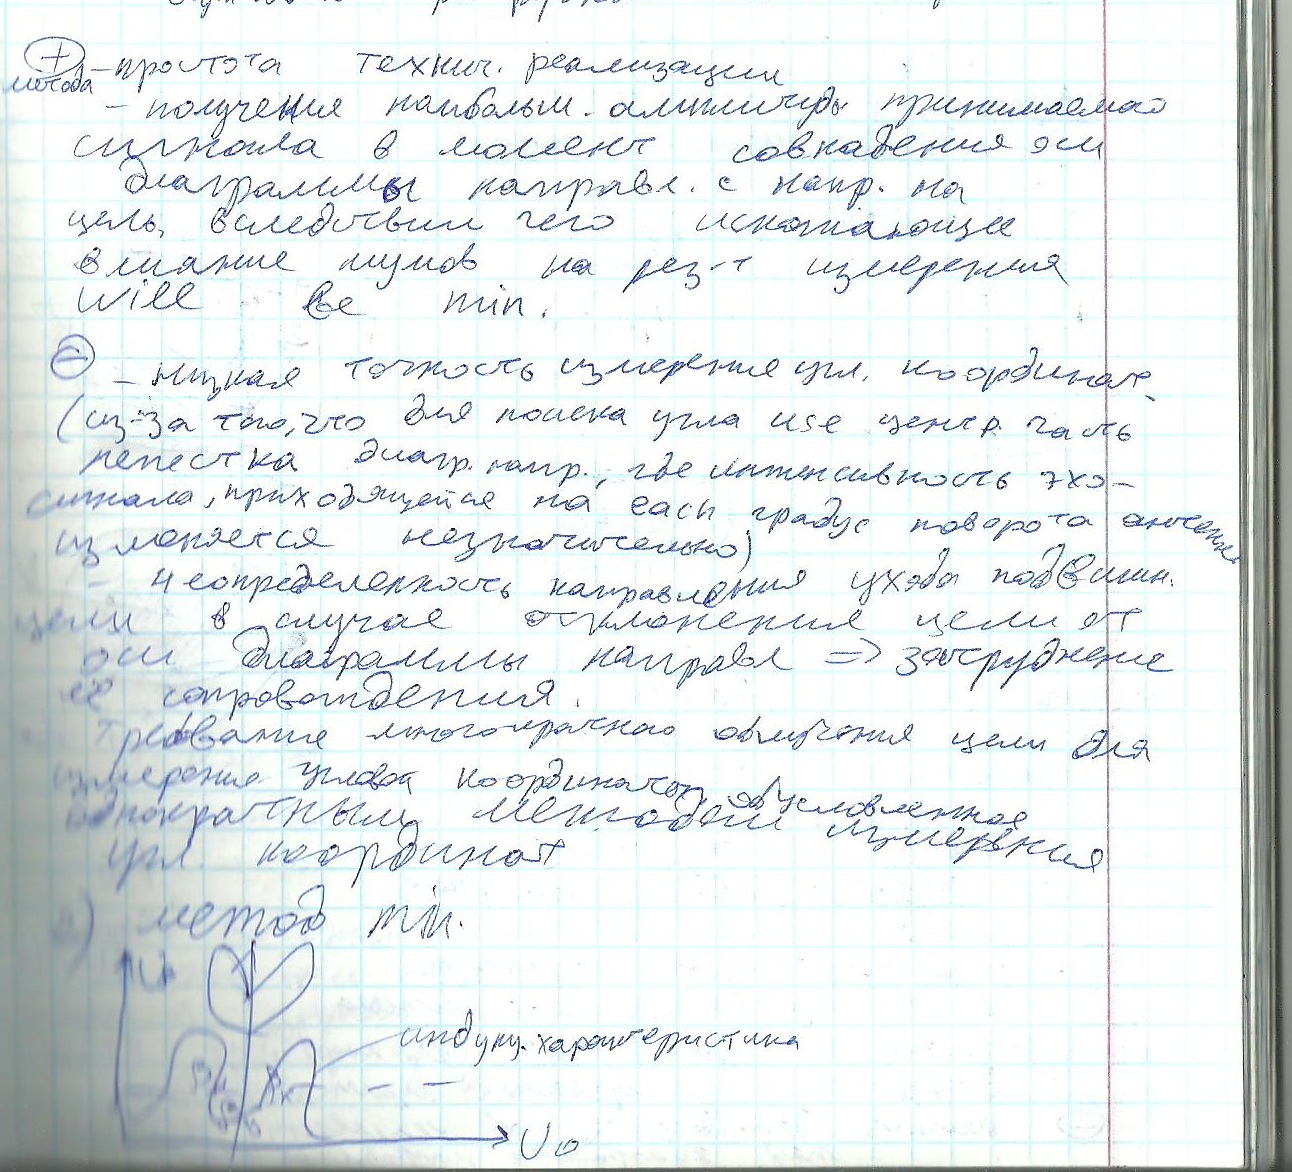 + – простота технич. реализации
метода
– получение наибольш. амплитуды принимаемого
сигнала в момент совпадения оси
диаграммы направл. с напр. на
цель, вследствии чего искажающее
влияние шумов на рез-т измерения
will be min.
– – низкая точность измерения угл. координат
(из-за того, что для поиска угла use центр. часть
лепестка диагр. напр., где интенсивность эхо-
сигнала, приходящейся на each градус поворота антенны
изменяется незначительно)
– неопределенность направления ухода подвижн.
цели в случае отклонения цели от
оси диаграммы направл => затруднение
её сопровождения.
требование многократного облучения цели для
измерения угловой координаты, обусловленное
однократным методом измерения
угл. координат
2) метод min.
индикц. характеристика
U₀